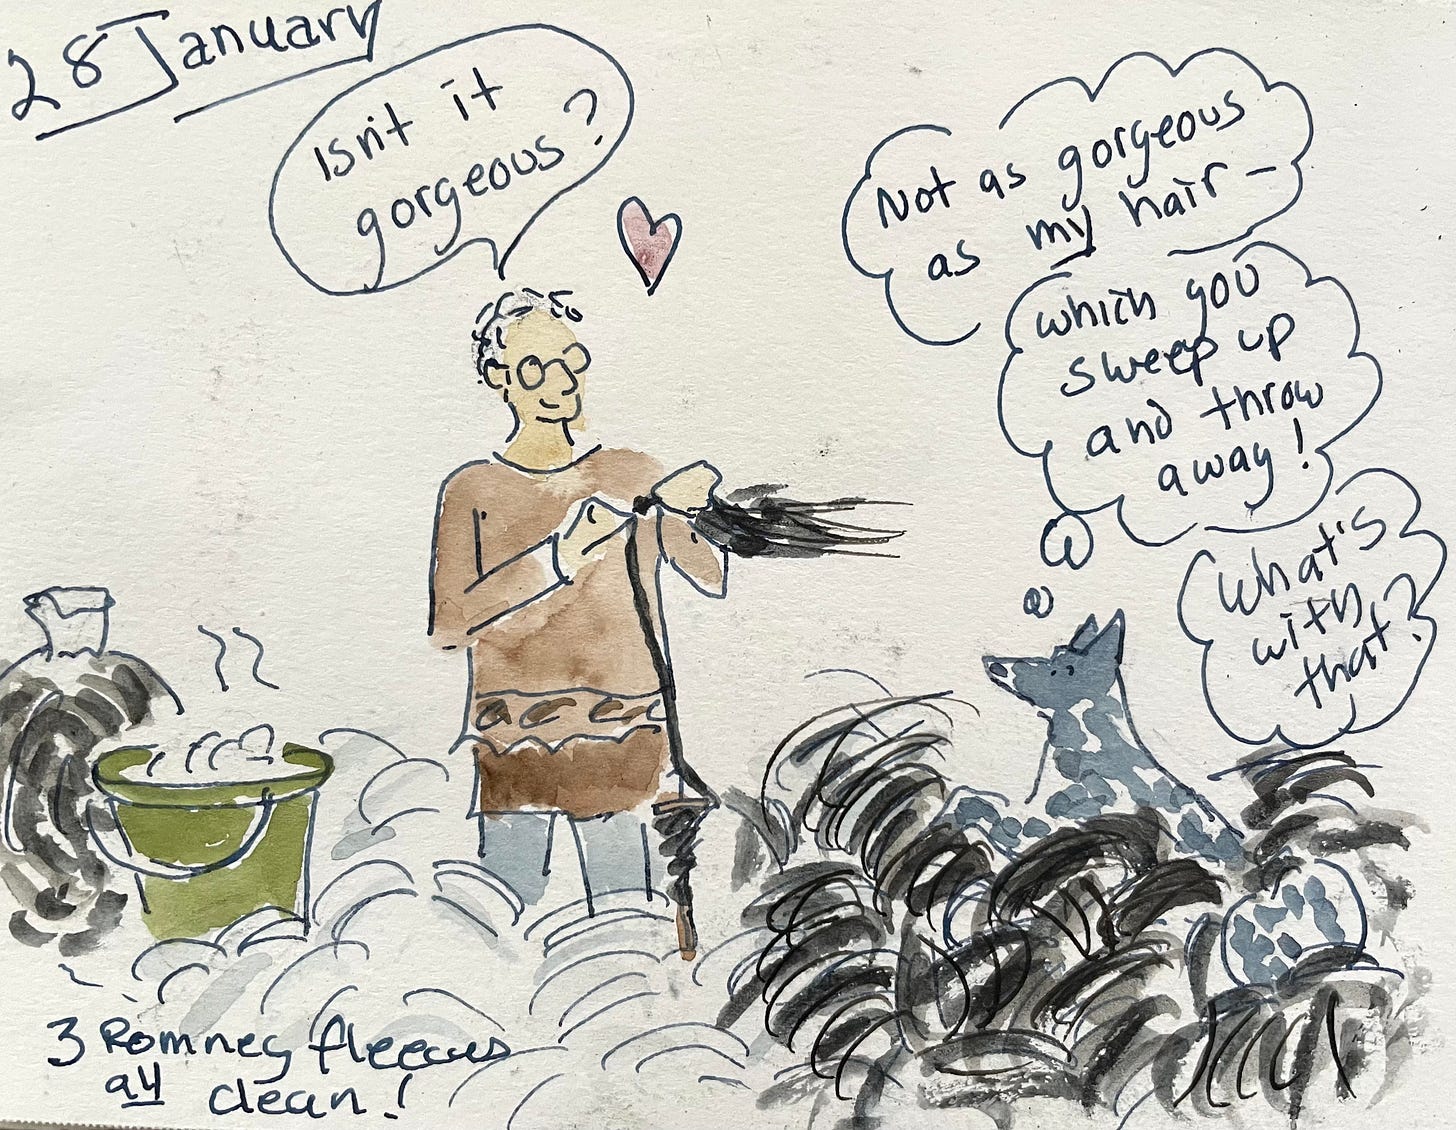 28 January
Isn't it
gorgeous?
Not as gorgeous
as my hair -
which you
sweep up
and throw
away!
What's
with
that?
3 Romney fleeces
all clean!